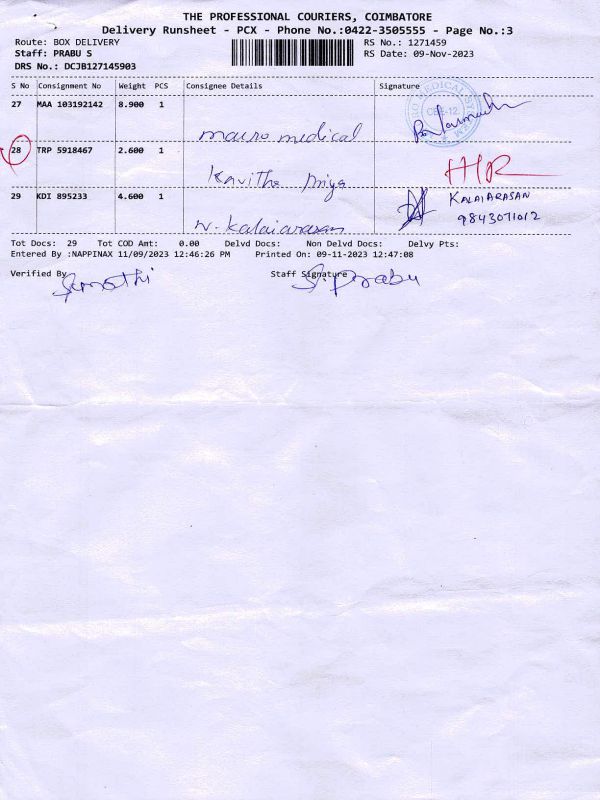 THE PROFESSIONAL COURIERS, COIMBATORE
Delivery Runsheet - PCX - Phone No.:0422-3505555 - Page No.:3
Route: BOX DELIVERY
RS No.: 1271459
Staff: PRABU S
RS Date: 09-Nov-2023
DRS No.: DCJB127145903
S No Consignment No Weight PCS Consignee Details Signature
27 MAA 103192142 8.900 1
mauro medical
28 TRP 5918467 2.600 1
Kavitha Priya
29 KDI 895233 4.600 1
KALAIARASAN
9843071012
N. Kalaiarasan
Tot Docs: 29 Tot COD Amt: 0.00 Delvd Docs: Non Delvd Docs: Delvy Pts:
Entered By :NAPPINAX 11/09/2023 12:46:26 PM Printed On: 09-11-2023 12:47:08
Verified By
Staff Signature
S. Prabu